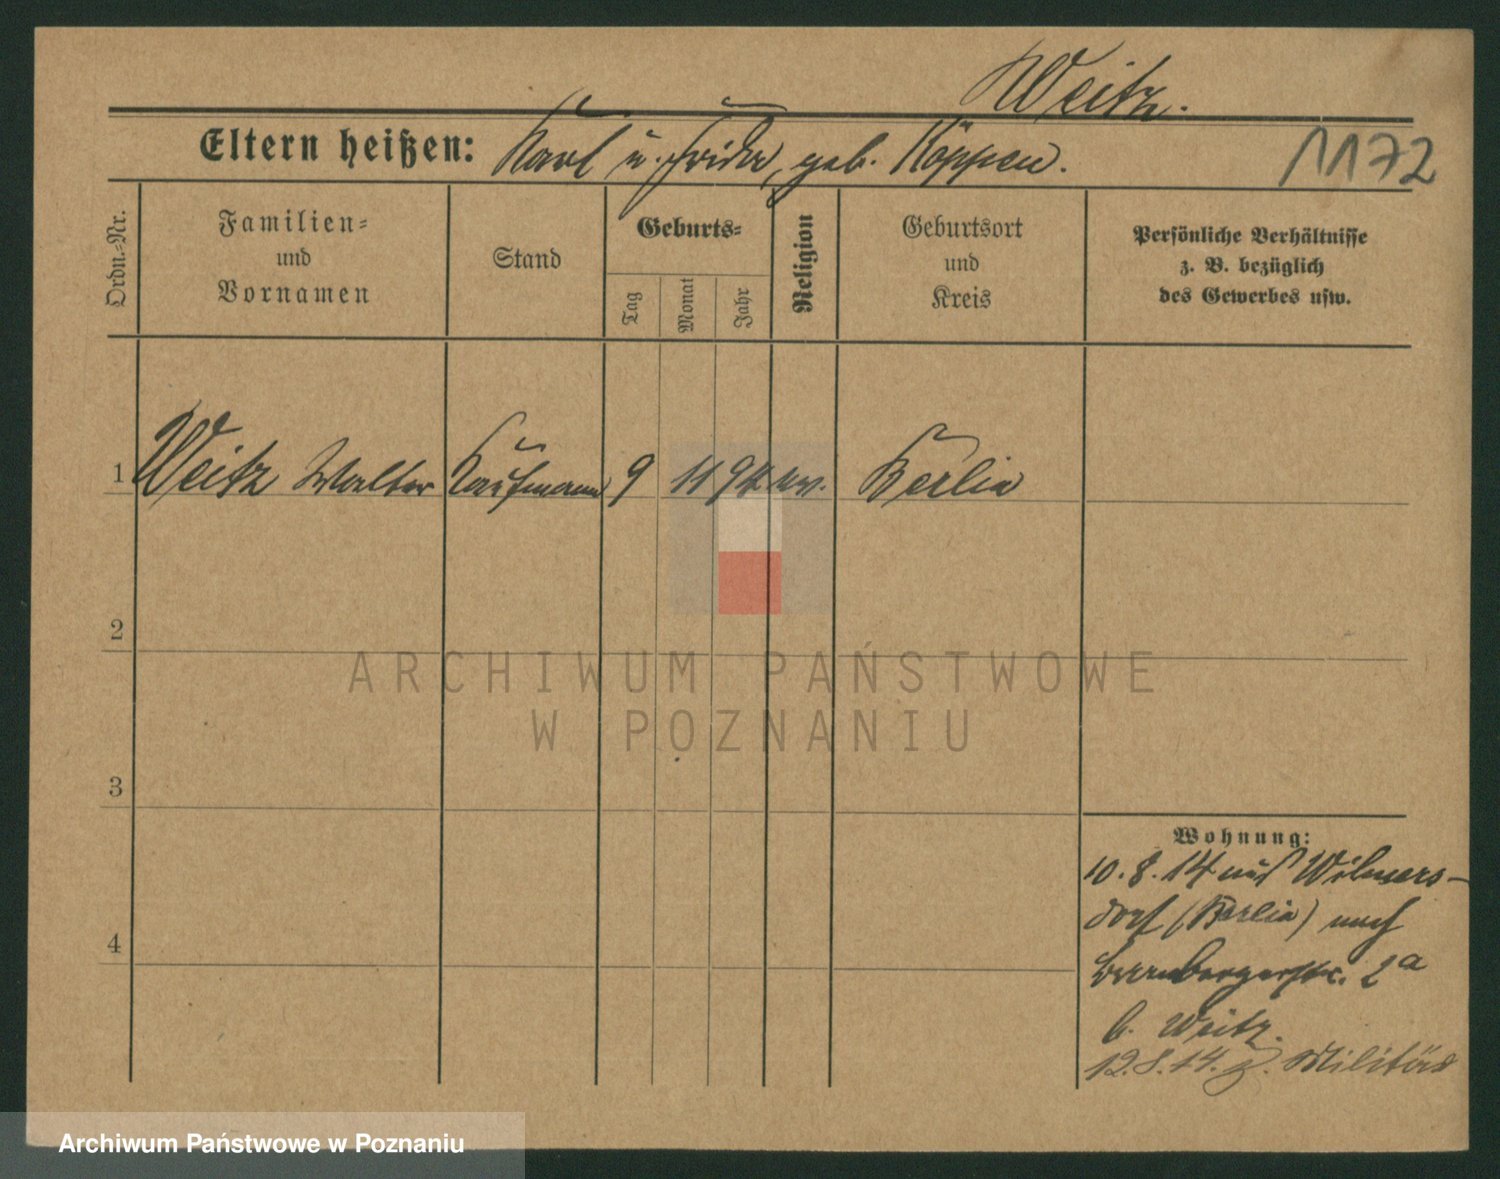 Weitz.
Eltern heißen: Karl u. Frida, geb. Köppen.
1172
Ordn.-Nr.
Familien-
und
Vornamen
Stand
Geburts-
Tag
Monat
Jahr
Religion
Geburtsort
und
Kreis
Persönliche Verhältnisse
z. B. bezüglich
des Gewerbes usw.
1 Weitz Walter Kaufmann 9 11 94 ev. Berlin
2
3
4
Wohnung:
10. 8. 14 aus Wilmers-
dorf (Berlin) nach
2a
b. Weitz.
12. 8. 14. z. Militär
ARCHIWUM PAŃSTWOWE
W POZNANIU
Archiwum Państwowe w Poznaniu